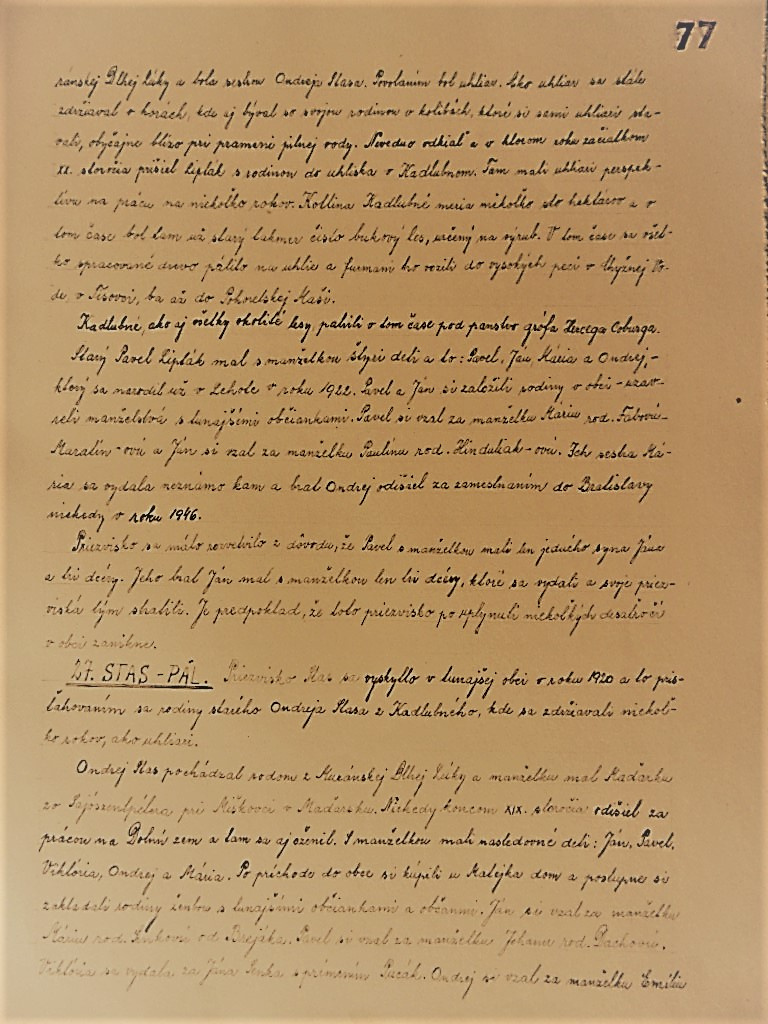 77
ránskej Dlhej Lúky a bola sestrou Ondreja Stasa. Povolaním bol uhliar. Ako uhliar sa stále
zdržiaval v horách, kde aj býval so svojou rodinou v kolibách, ktoré si sami uhliari sta-
vali, obyčajne blízo pri prameni pitnej vody. Nevedno odkiaľ a v ktorom roku začiatkom
XX. storočia prišiel Lipták s rodinou do uhliska v Kadlubnom. Tam mali uhliari perspek-
tívu na prácu na niekoľko rokov. Kotlina Kadlubné meria niekoľko sto hektárov a v
tom čase bol tam už starý takmer čisto bukový les, určený na výrub. V tom čase sa všet-
ko spracované drevo pálilo na uhlie a furmani ho vozili do vysokých pecí v Vyžnej Vo-
de, v Tisovci, ba až do Pohorelskej Maši.
Kadlubné, ako aj všetky okolité lesy, patrili v tom čase pod panstvo grófa Hercega Coburga.
Starý Pavel Lipták mal s manželkou štyri deti a to: Pavel, Ján, Mária a Ondrej,-
ktorý sa narodil už v Lehote v roku 1922. Pavel a Ján si založili rodiny v obci - uzav-
reli manželstvá s tunajšími občiankami. Pavel si vzal za manželku Máriu rod. Fabovú-
Maratín-ovú a Ján si vzal za manželku Paulínu rod. Hinduliak-ovú. Ich sestra Má-
ria sa vydala neznámo kam a brat Ondrej odišiel za zamestnaním do Bratislavy
niekedy v roku 1946.
Priezvisko sa málo rozvetvilo z dôvodu, že Pavel s manželkou mali len jedného syna Jána
a tri dcéry. Jeho brat Ján mal s manželkou len tri dcéry, ktoré sa vydali a svoje priez-
viská tým stratili. Je predpoklad, že toto priezvisko po uplynutí niekoľkých desaťročí
v obci zanikne.
27. STAS - PÁL. Priezvisko Stas sa vyskytlo v tunajšej obci v roku 1920 a to pris-
ťahovaním sa rodiny starého Ondreja Stasa z Kadlubného, kde sa zdržiavali niekoľ-
ko rokov, ako uhliari.
Ondrej Stas pochádzal rodom z Muránskej Dlhej Lúky a manželku mal Maďarku
zo Sajószentpétera pri Miškovci v Maďarsku. Niekedy koncom XIX. storočia odišiel za
prácou na Dolnú zem a tam sa aj oženil. S manželkou mali nasledovné deti: Ján, Pavel,
Viktória, Ondrej a Mária. Po príchode do obce si kúpili u Matejka dom a postupne si
zakladali rodiny ženbou s tunajšími občiankami a občanmi. Ján si vzal za manželku
Máriu rod. Senkovú od Brejáka. Pavel si vzal za manželku Johanu rod. Bachovú.
Viktória sa vydala za Jána Senka s prímením Pucák. Ondrej si vzal za manželku Emíliu